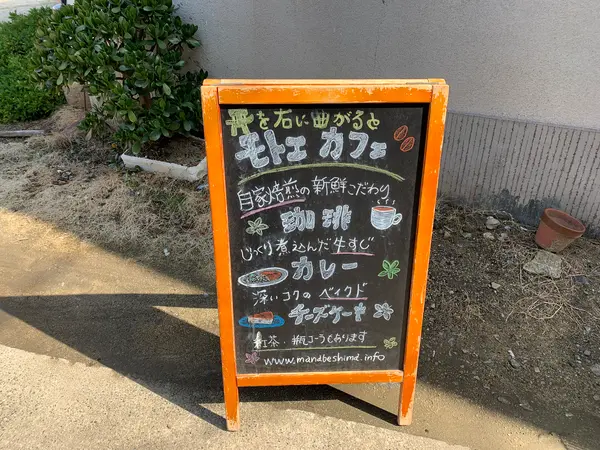 を右に曲がると
モトエカフェ
自家焙煎の新鮮こだわり
珈琲
じっくり煮込んだ牛すじ
カレー
深いコクのベイクド
チーズケーキ
紅茶・瓶コーラもあります
www.manabeshima.info